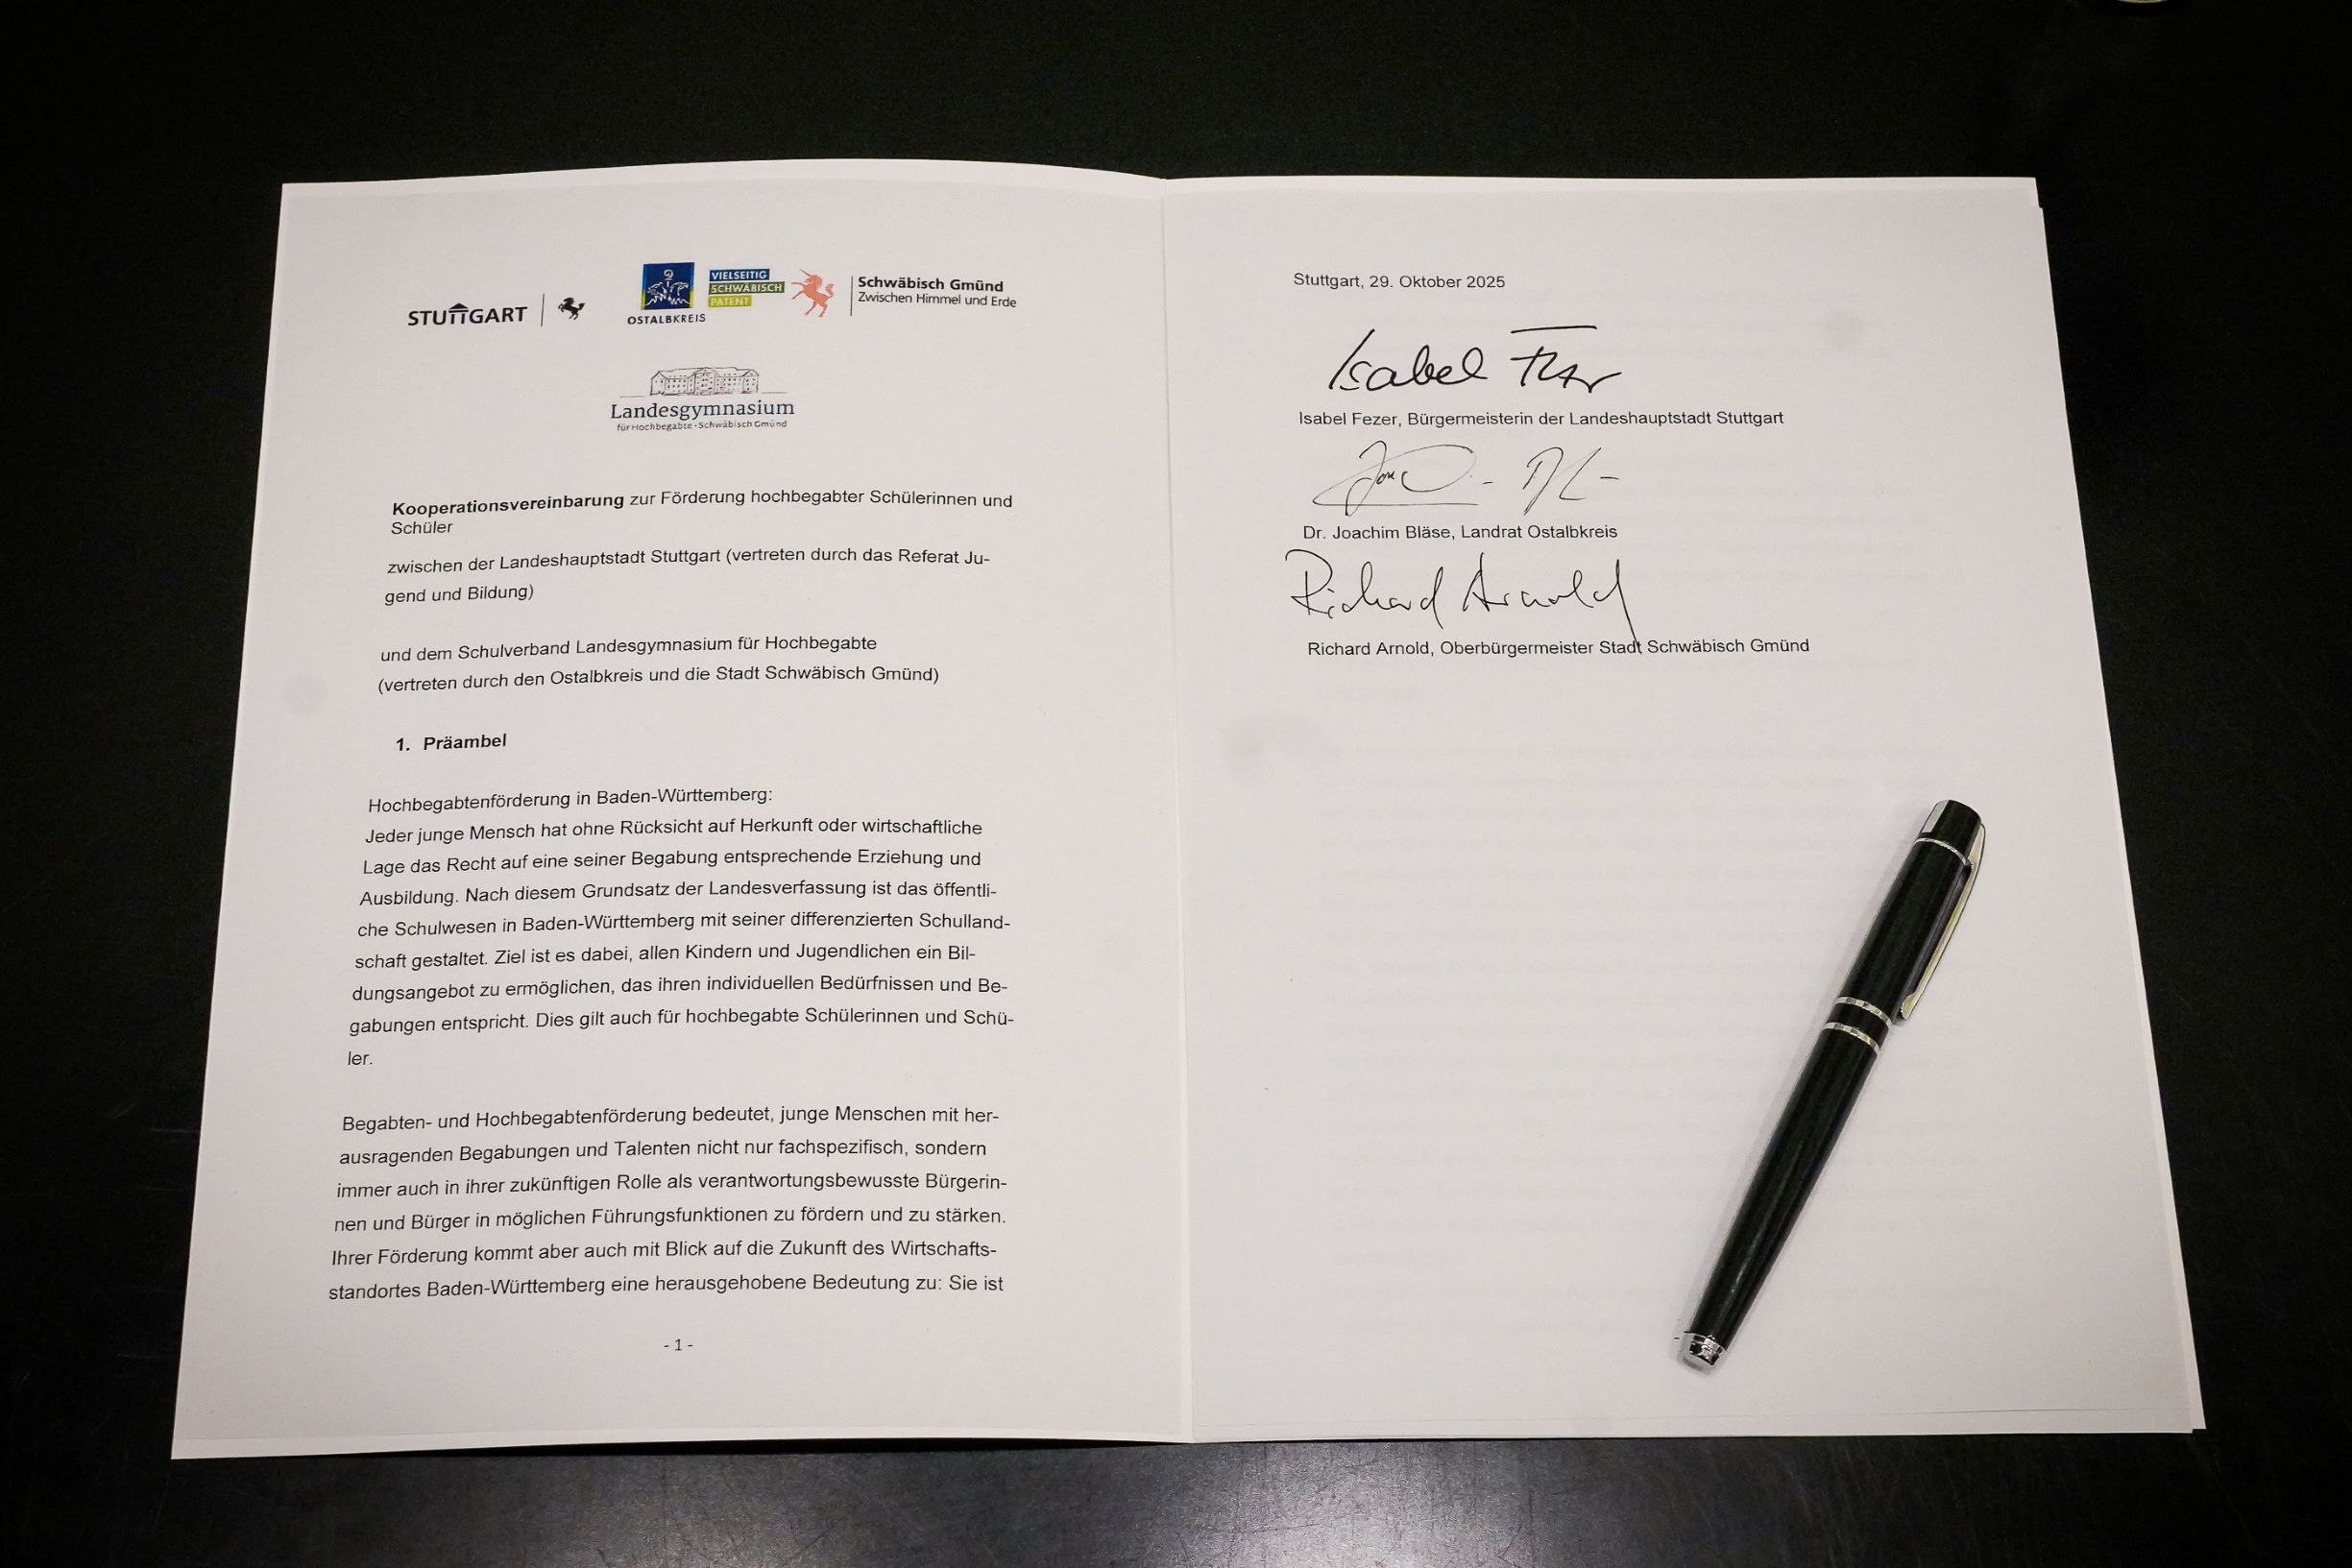 STUTTGART
OSTALBKREIS
VIELSEITIG
SCHWÄBISCH
PATENT
Schwäbisch Gmünd
Zwischen Himmel und Erde
Landesgymnasium
für Hochbegabte · Schwäbisch Gmünd
Kooperationsvereinbarung zur Förderung hochbegabter Schülerinnen und
Schüler
zwischen der Landeshauptstadt Stuttgart (vertreten durch das Referat Ju-
gend und Bildung)
und dem Schulverband Landesgymnasium für Hochbegabte
(vertreten durch den Ostalbkreis und die Stadt Schwäbisch Gmünd)
1. Präambel
Hochbegabtenförderung in Baden-Württemberg:
Jeder junge Mensch hat ohne Rücksicht auf Herkunft oder wirtschaftliche
Lage das Recht auf eine seiner Begabung entsprechende Erziehung und
Ausbildung. Nach diesem Grundsatz der Landesverfassung ist das öffentli-
che Schulwesen in Baden-Württemberg mit seiner differenzierten Schulland-
schaft gestaltet. Ziel ist es dabei, allen Kindern und Jugendlichen ein Bil-
dungsangebot zu ermöglichen, das ihren individuellen Bedürfnissen und Be-
gabungen entspricht. Dies gilt auch für hochbegabte Schülerinnen und Schü-
ler.
Begabten- und Hochbegabtenförderung bedeutet, junge Menschen mit her-
ausragenden Begabungen und Talenten nicht nur fachspezifisch, sondern
immer auch in ihrer zukünftigen Rolle als verantwortungsbewusste Bürgerin-
nen und Bürger in möglichen Führungsfunktionen zu fördern und zu stärken.
Ihrer Förderung kommt aber auch mit Blick auf die Zukunft des Wirtschafts-
standortes Baden-Württemberg eine herausgehobene Bedeutung zu: Sie ist
- 1 -
Stuttgart, 29. Oktober 2025
Isabel
Isabel Fezer, Bürgermeisterin der Landeshauptstadt Stuttgart
Dr. Joachim Bläse, Landrat Ostalbkreis
Richard Arnold
Richard Arnold, Oberbürgermeister Stadt Schwäbisch Gmünd